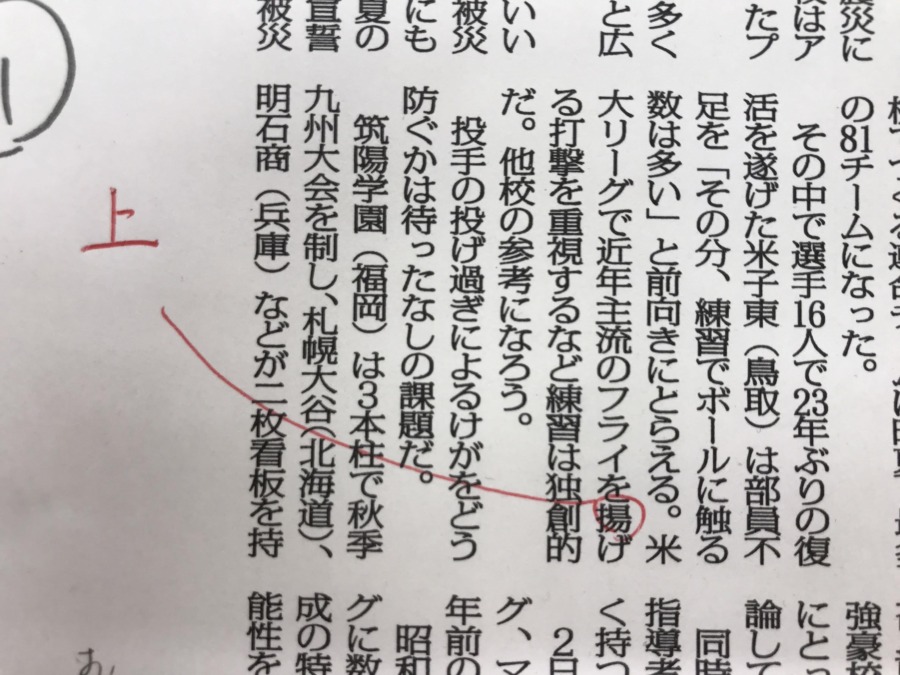 震災に
はア
たプ
多く
と広
いい
被災
にも
夏の
宣誓
被災
の81チームになった。
その中で選手16人で23年ぶりの復
活を遂げた米子東（鳥取）は部員不
足を「その分、練習でボールに触る
数は多い」と前向きにとらえる。米
大リーグで近年主流のフライを揚げ
る打撃を重視するなど練習は独創的
だ。他校の参考になろう。
投手の投げ過ぎによるけがをどう
防ぐかは待ったなしの課題だ。
筑陽学園（福岡）は3本柱で秋季
九州大会を制し、札幌大谷（北海道）、
明石商（兵庫）などが二枚看板を持
強豪校
にとっ
論して
同時
指導者
く持つ
2日
グ、マ
年前の
昭和
グに数
成の特
能性を
上
1